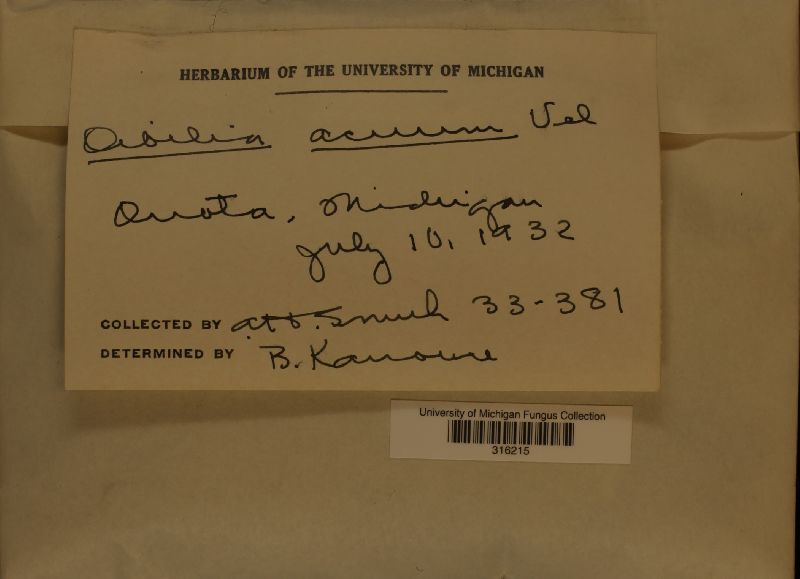 HERBARIUM OF THE UNIVERSITY OF MICHIGAN
acuum Vel
Onota, Michigan
July 10, 1932
COLLECTED BY A.H. Smith 33-381
DETERMINED BY B. Kanouse
University of Michigan Fungus Collection
316215